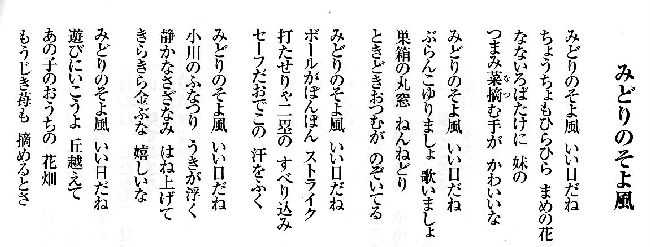 みどりのそよ風
みどりのそよ風 いい日だね
ちょうちょもひらひら まめの花
なないろばたけに 妹の
つまみ菜摘む手が かわいいな
みどりのそよ風 いい日だね
ぶらんこゆりましょ 歌いましょ
巣箱の丸窓 ねんねどり
ときどきおつむが のぞいてる
みどりのそよ風 いい日だね
ボールがぽんぽん ストライク
打たせりゃ二塁の すべり込み
セーフだおでこの 汗をふく
みどりのそよ風 いい日だね
小川のふなつり うきが浮く
静かなさざなみ はね上げて
きらきら金ぶな 嬉しいな
みどりのそよ風 いい日だね
遊びにいこうよ 丘越えて
あの子のおうちの 花畑
もうじき苺も 摘めるとさ